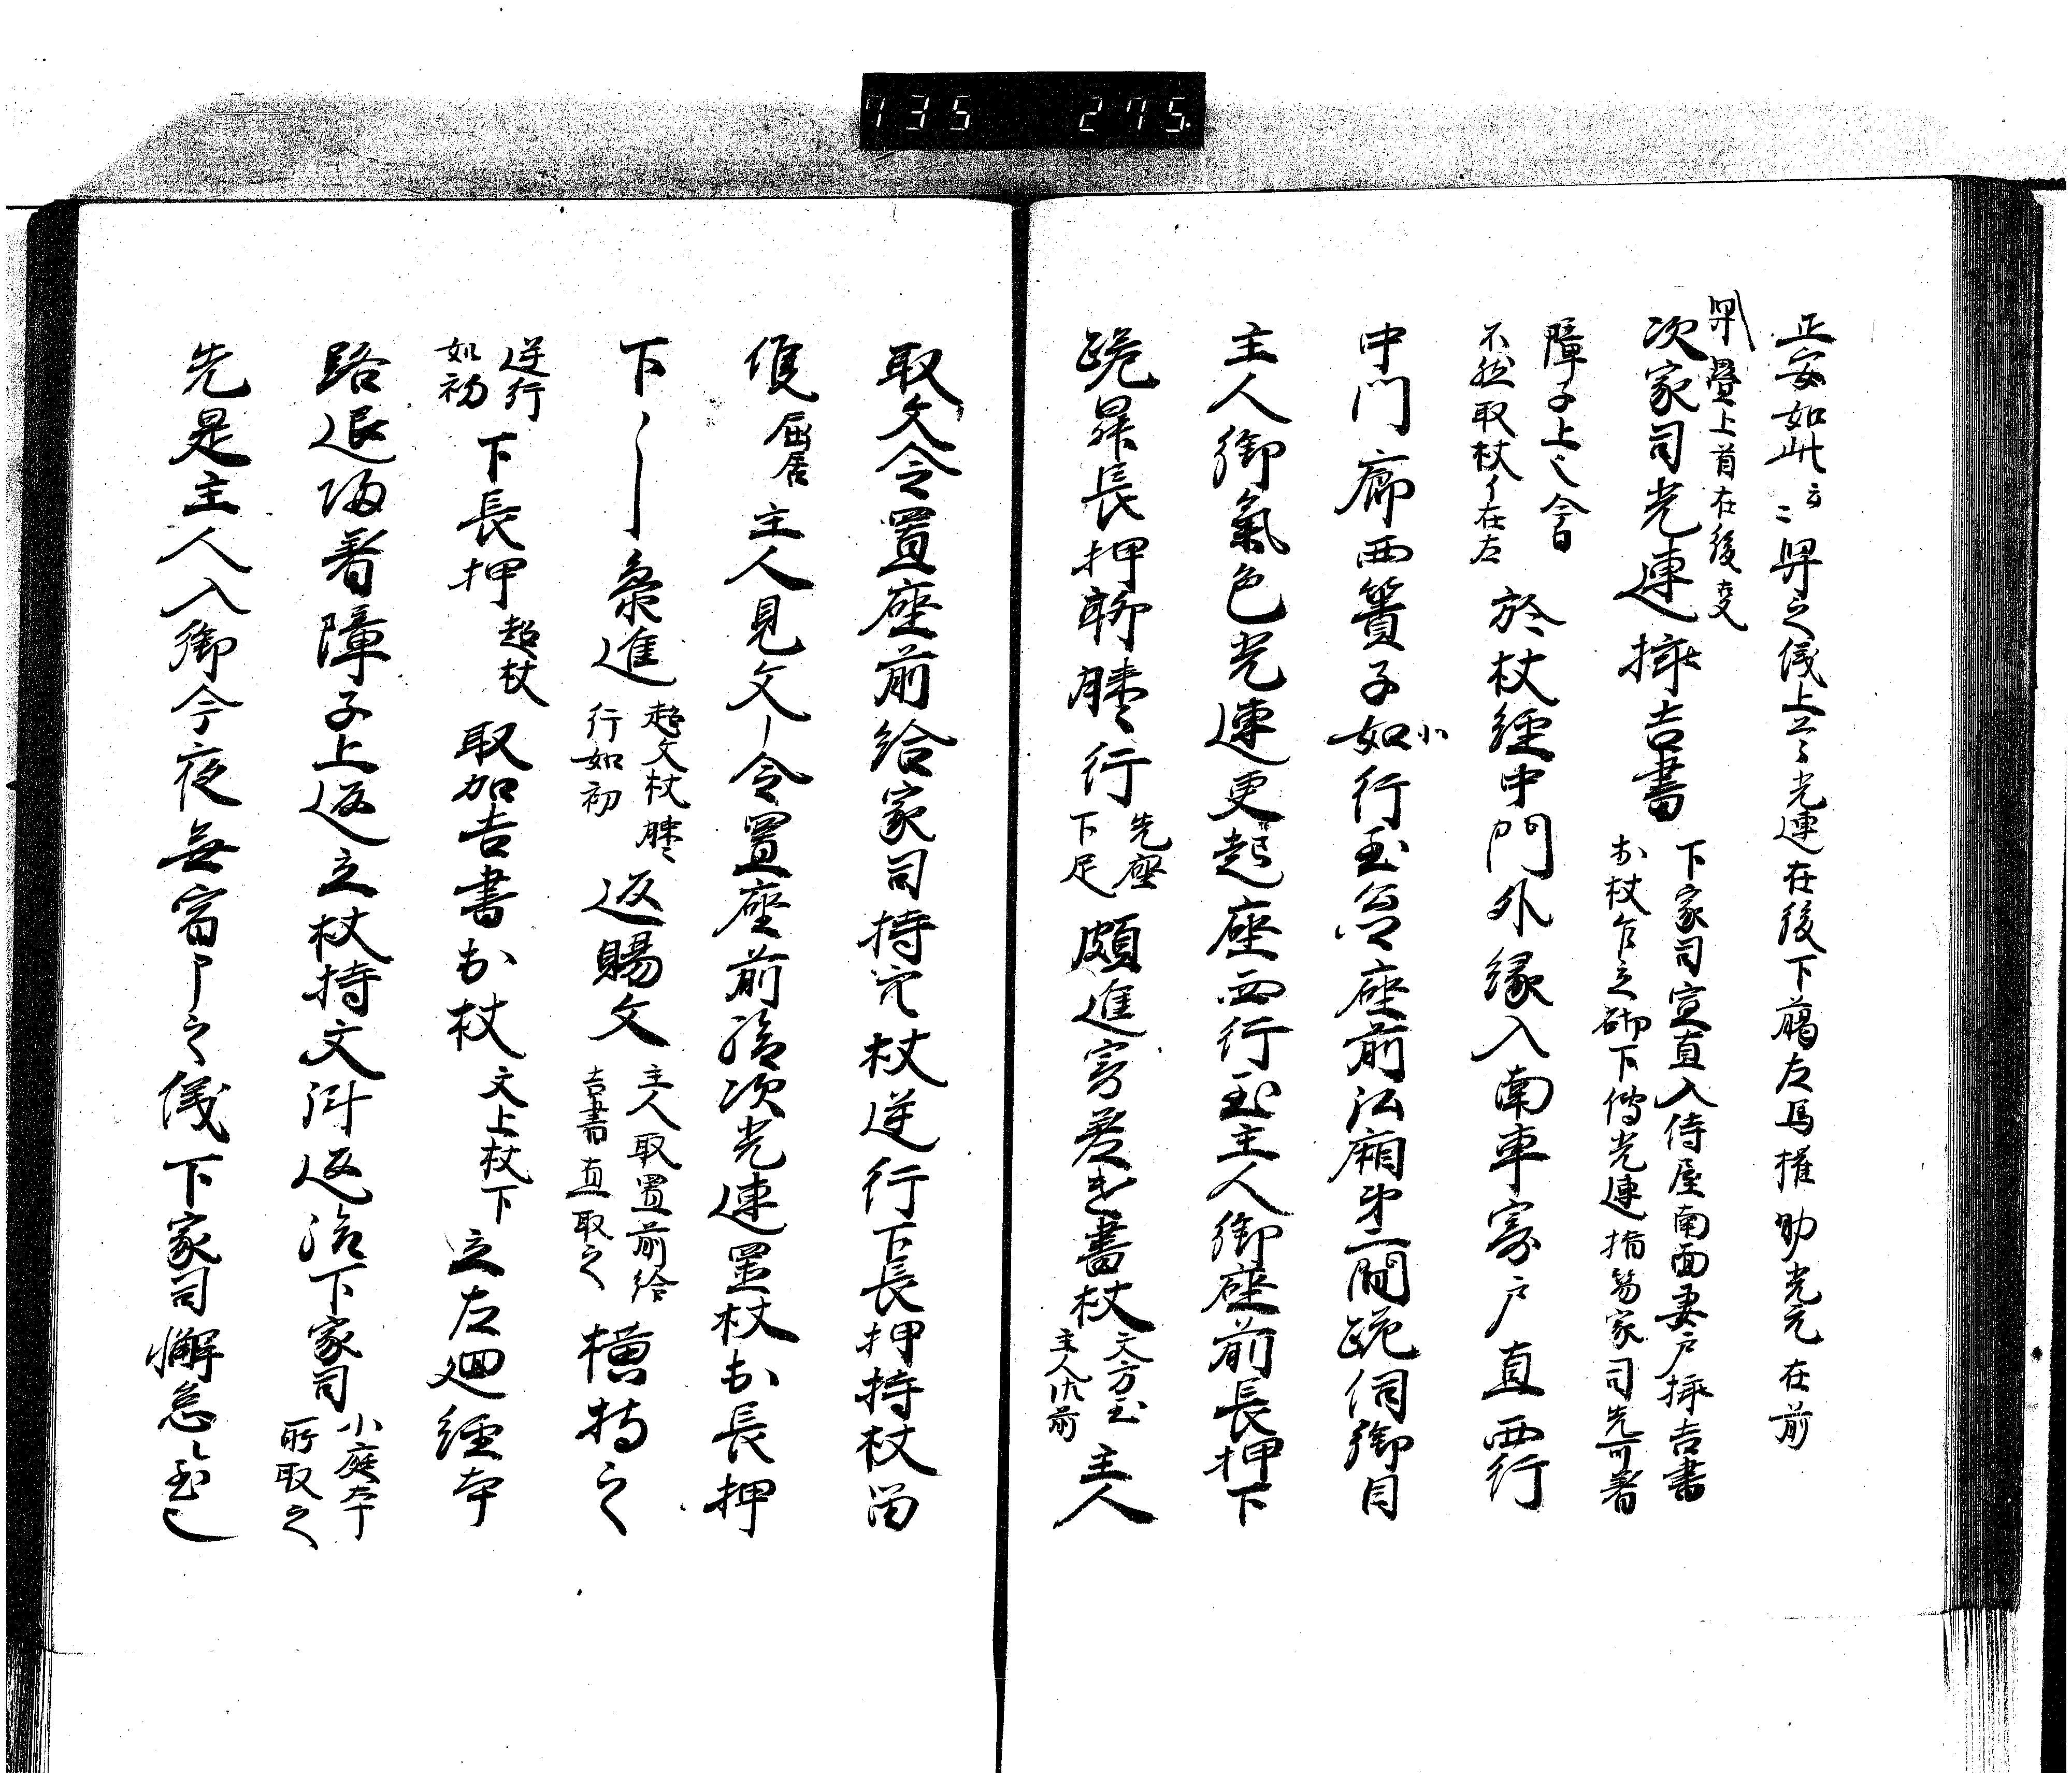 735 275
正安如此云々昇之儀上首光連在後下﨟左馬権助光元在前
昇畳上首在後
次家司光連挿吉書
下家司宣直入侍屋南面妻戸挿吉書
於杖乍立砌下伝光連指笏家司先可著
障子上也今日
不然取杖了在左
於杖経中門外縁入南車寄戸直西行
中門廊西簀子如小行至公卿座前弘廂第二間跪伺御目
主人御氣色光連更起座西行至主人御座前長押下
跪昇長押聊膝行
先座
下足
頗進寄差書杖
文方至
主人御前
主人
取文令置座前給家司持空杖逆行下長押持杖留
候
居
主人見文了令置座前給次光連置杖於長押
下参進
超文杖膝
行如初
返賜文
主人取置前給
吉書直取之
横持之
逆行
如初
下長押
超杖
取加吉書於杖
文上杖下
立左廻経本
路退帰着障子上返立杖持文返給下家司
小庭本
所取之
先是主人入御今夜無宿申之儀下家司懈怠